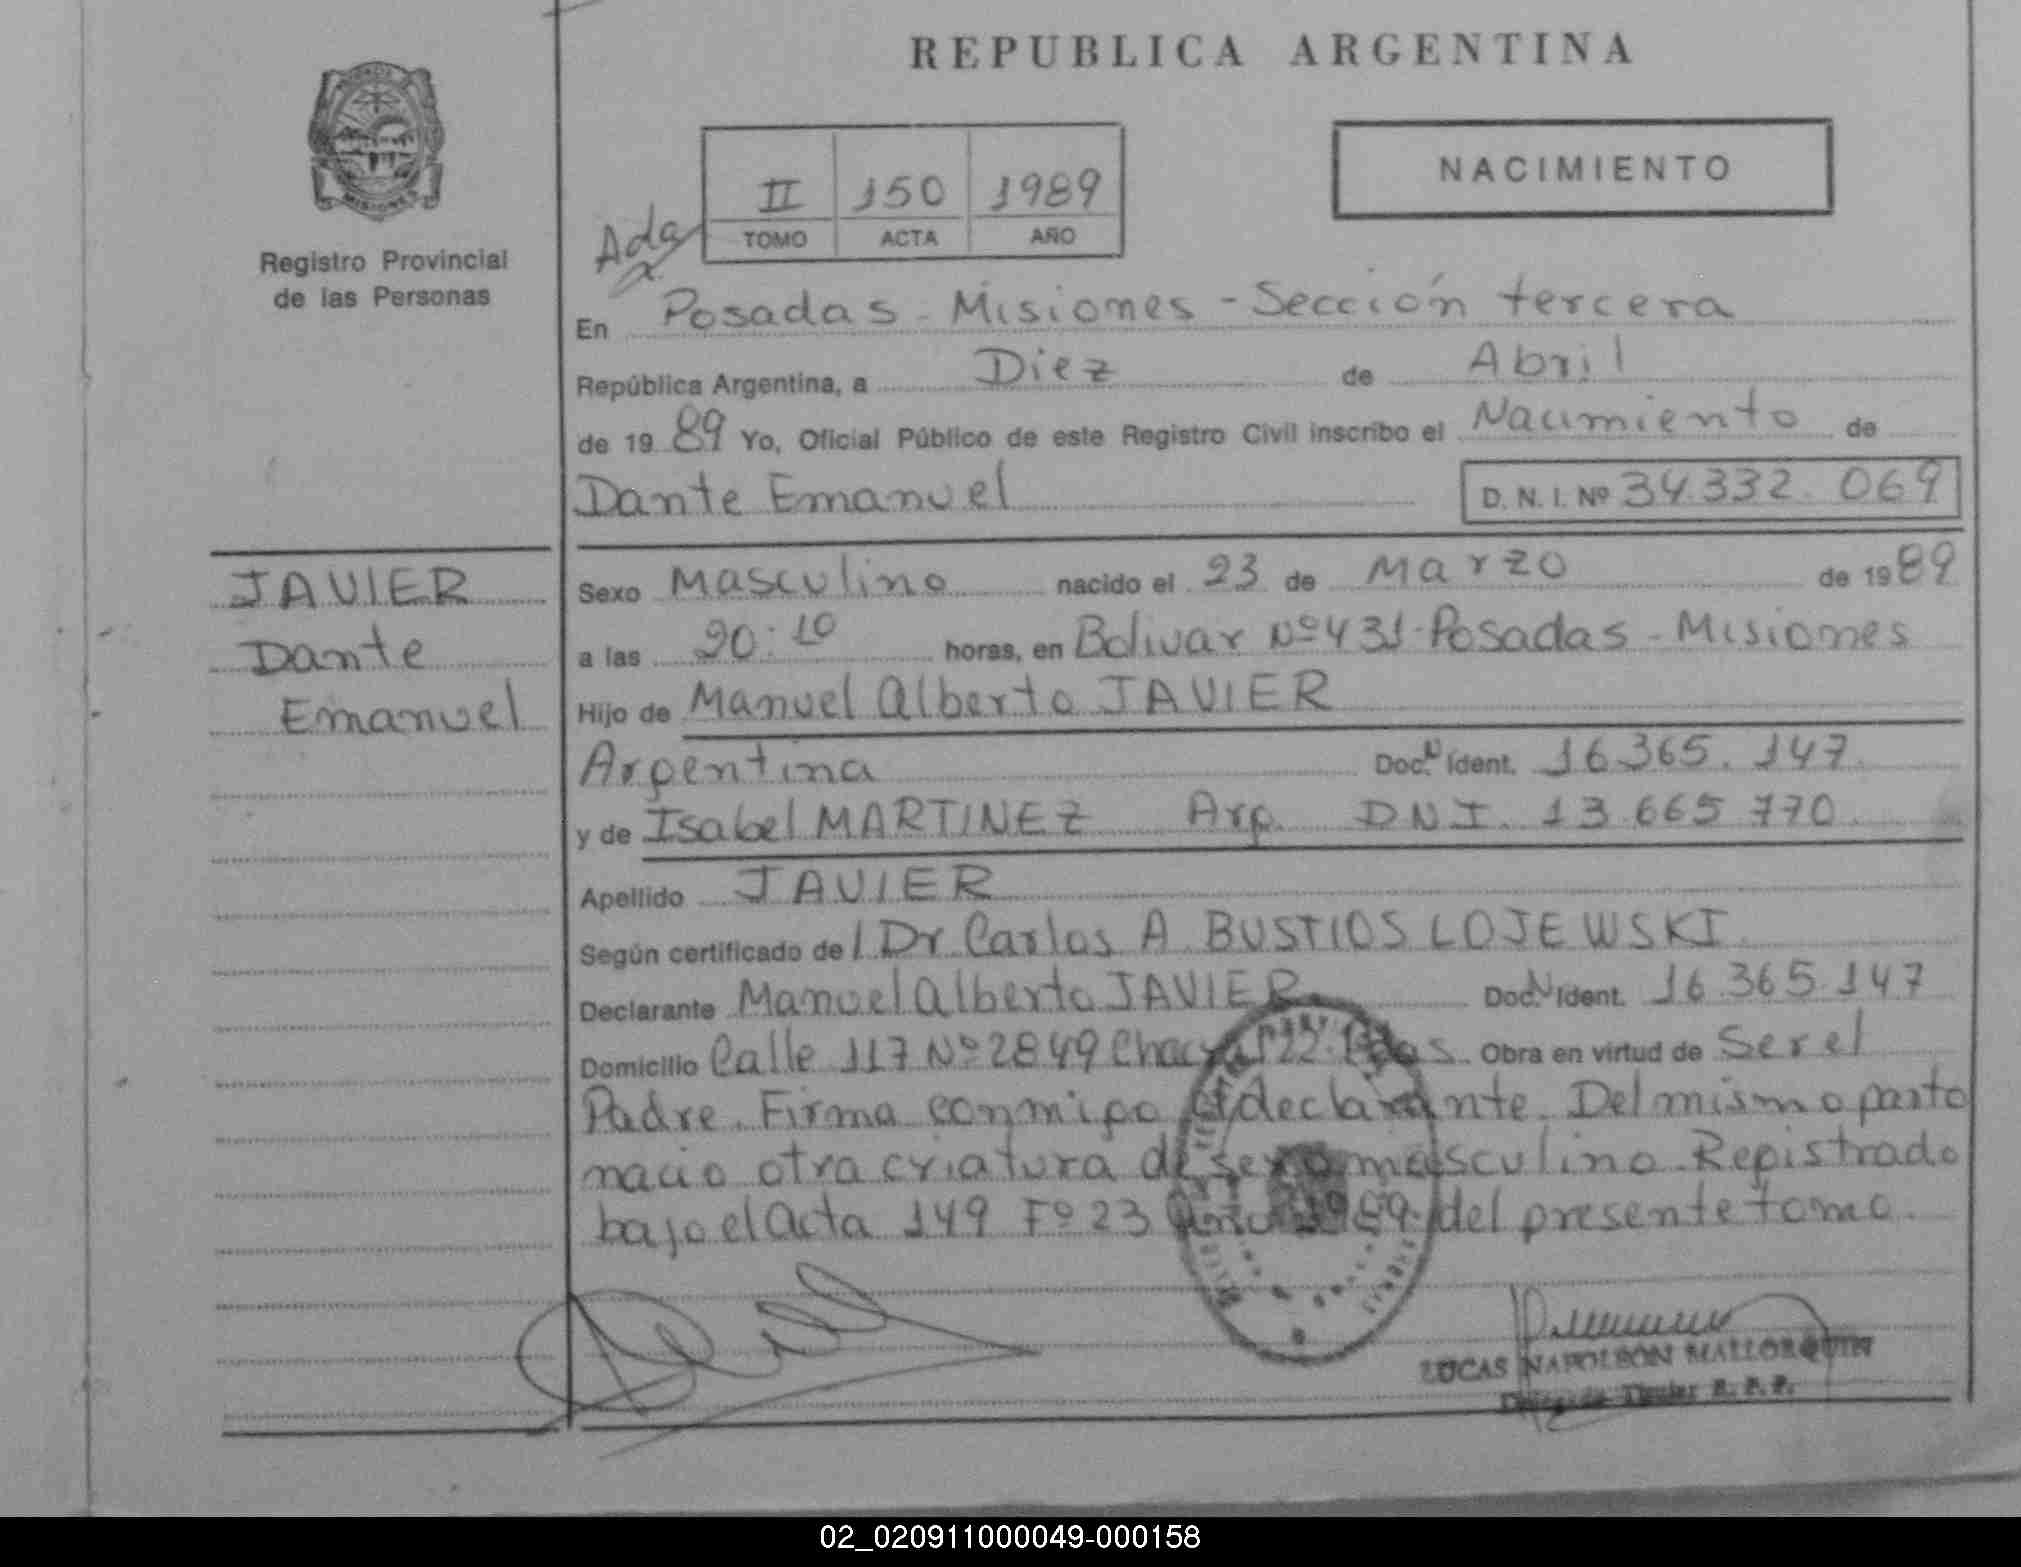 REPUBLICA ARGENTINA
NACIMIENTO
II 150 1989
TOMO ACTA AÑO
Registro Provincial
de las Personas
En Posadas - Misiones - Sección tercera
República Argentina, a Diez de Abril
de 1989 Yo, Oficial Público de este Registro Civil inscribo el Nacimiento de
Dante Emanuel D. N. I. Nº 34.332.069
JAVIER
Dante
Emanuel
Sexo Masculino nacido el 23 de Marzo de 1989
a las 20:10 horas, en Bolivar Nº 431-Posadas - Misiones
Hijo de Manuel Alberto JAVIER
Argentina Doc. N Ident. 16.365.147
y de Isabel MARTINEZ Arg. DNI. 13.665.770
Apellido JAVIER
Según certificado de l Dr Carlos A. BUSTIOS LOJEWSKI
Declarante Manuel Alberto JAVIER Doc. N Ident. 16.365.147
Domicilio Calle 117 Nº 2849 Obra en virtud de Ser el
Padre. Firma conmigo el declarante. Del mismo parto
nacio otra criatura de sexo masculino. Registrado
bajo el Acta 149 Fº 23 Año 1989 del presente tomo.
LUCAS NAPOLEON MALLORQUIN
Titular R. P. P.
02_020911000049-000158